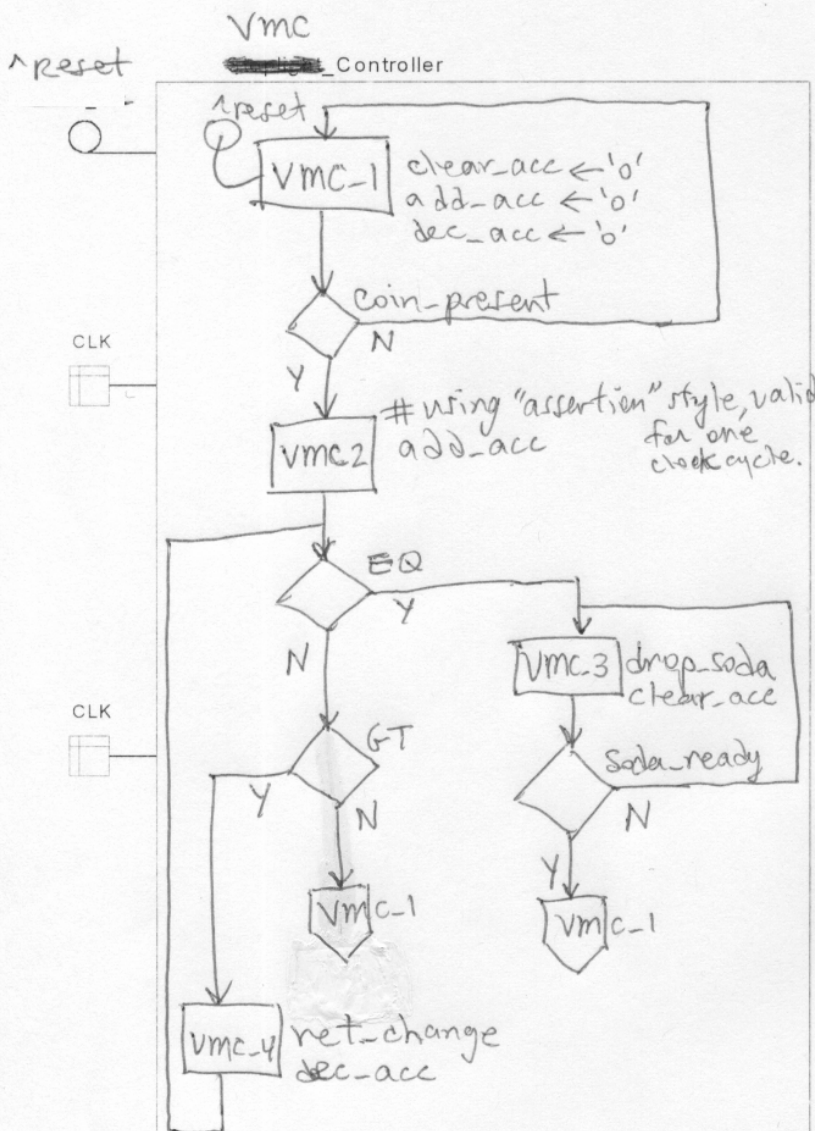 VMC
^reset
_Controller
^reset
VMC_1
clear_acc ← '0'
add_acc ← '0'
dec_acc ← '0'
coin_present
N
Y
CLK
VMC2
# using "assertion" style, valid
for one
clock cycle.
add_acc
EQ
Y
N
VMC_3
drop_soda
clear_acc
CLK
GT
Y
N
soda_ready
N
Y
VMC_1
VMC_1
VMC_4
ret_change
dec_acc